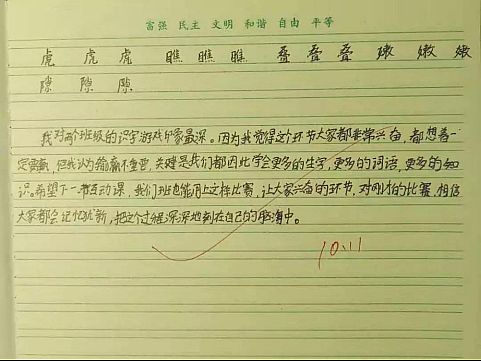 富强 民主 文明 和谐 自由 平等
虎 虎 虎 瞧 瞧 瞧 叠 叠 叠 嫩 嫩 嫩
隙 隙 隙
我对两个班级的识字游戏印象最深。因为我觉得这个环节大家都非常兴奋,都想着一
定要赢,但我认为输赢不重要,关键是我们都因此学会更多的生字,更多的词语,更多的知
识。希望下一堂互动课,我们班也能同上这样比赛,让大家兴奋的环节,对刚才的比赛,相信
大家都会记忆犹新,把这个过程深深地刻在自己的脑海中。
10.11